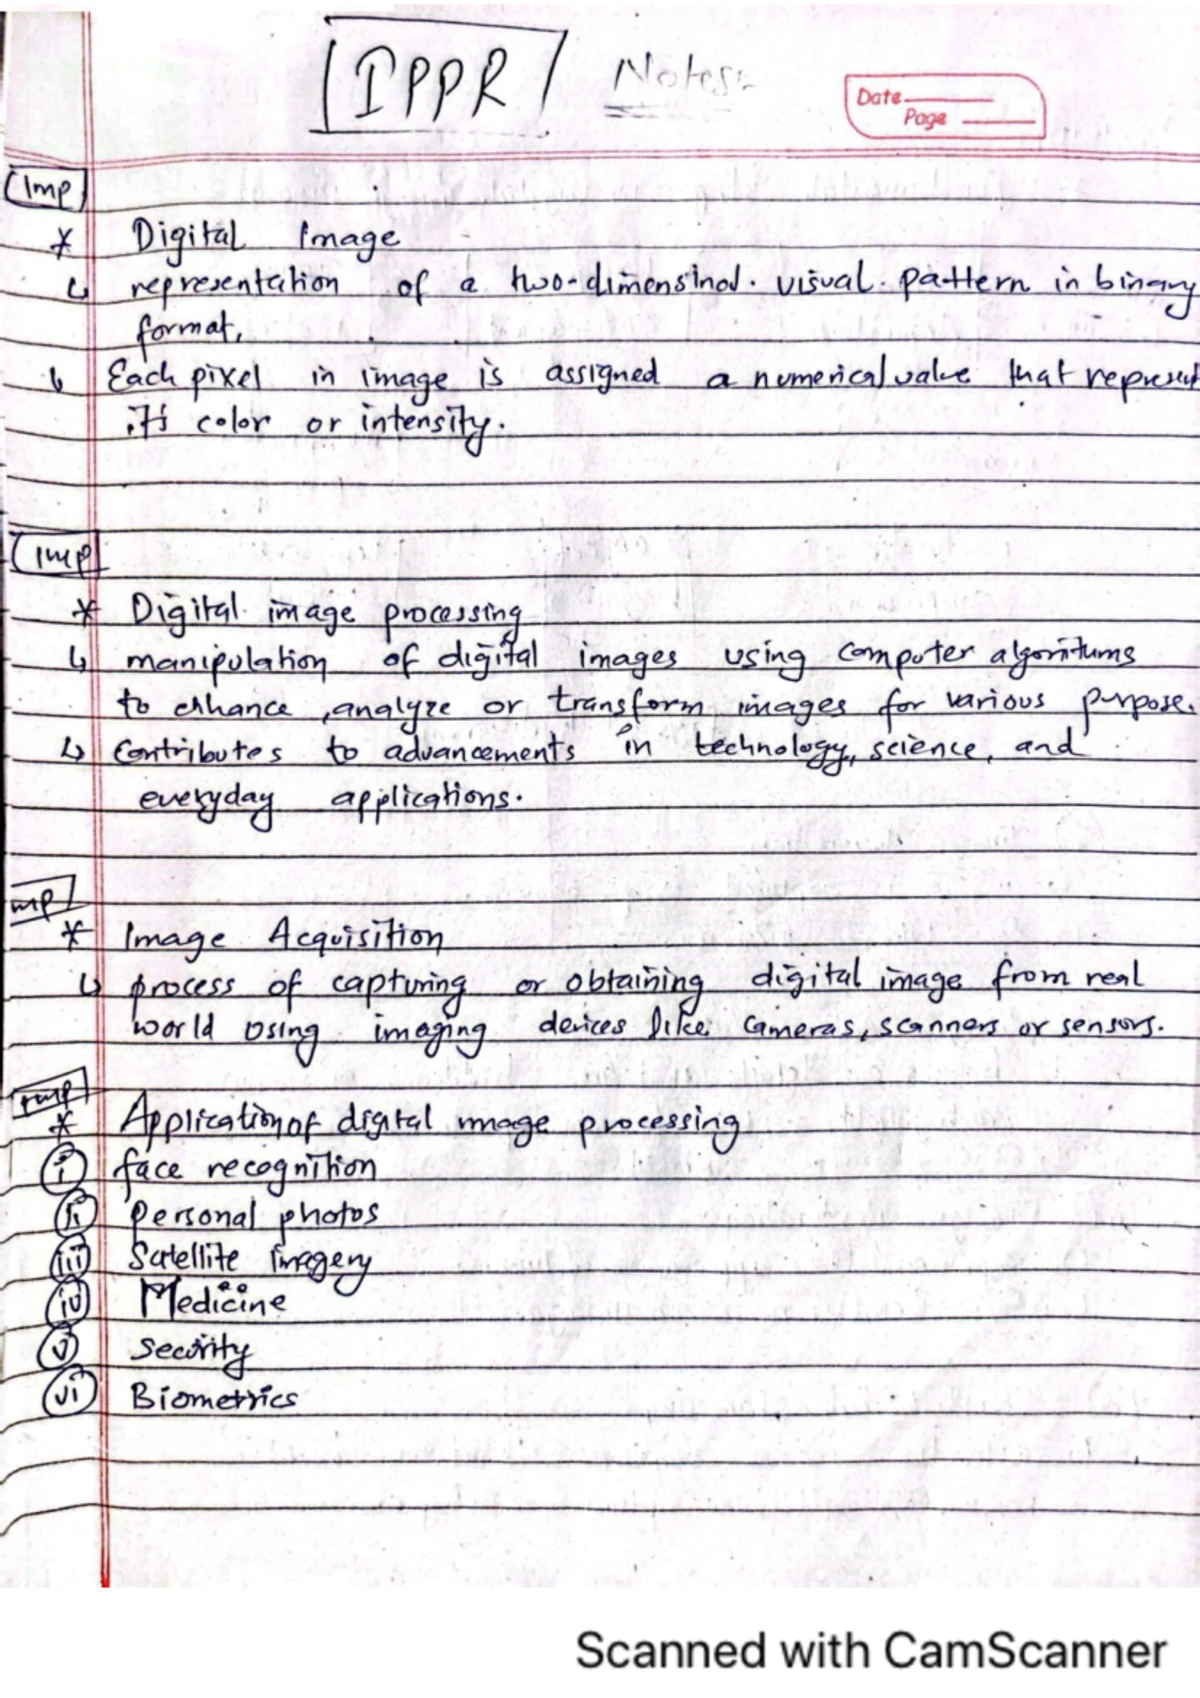 IPPR Notes:
Date
Page
Imp
* Digital Image
↳ representation of a two-dimensinal. visual. pattern in binary
format.
↳ Each pixel in image is assigned a numerical value that represent
its color or intensity.
Imp
* Digital image processing
↳ manipulation of digital images using computer algoritums
to enhance, analyze or transform images for various purpose.
↳ contributes to advancements in technology, science, and
everyday applications.
Imp
* Image Acquisition
↳ process of capturing or obtaining digital image from real
world using imaging devices like cameras, scanners or sensors.
Imp
* Application of digital image processing
i face recognition
ii Personal photos
iii Satellite imagery
iv Medicine
v security
vi Biometrics
Scanned with CamScanner